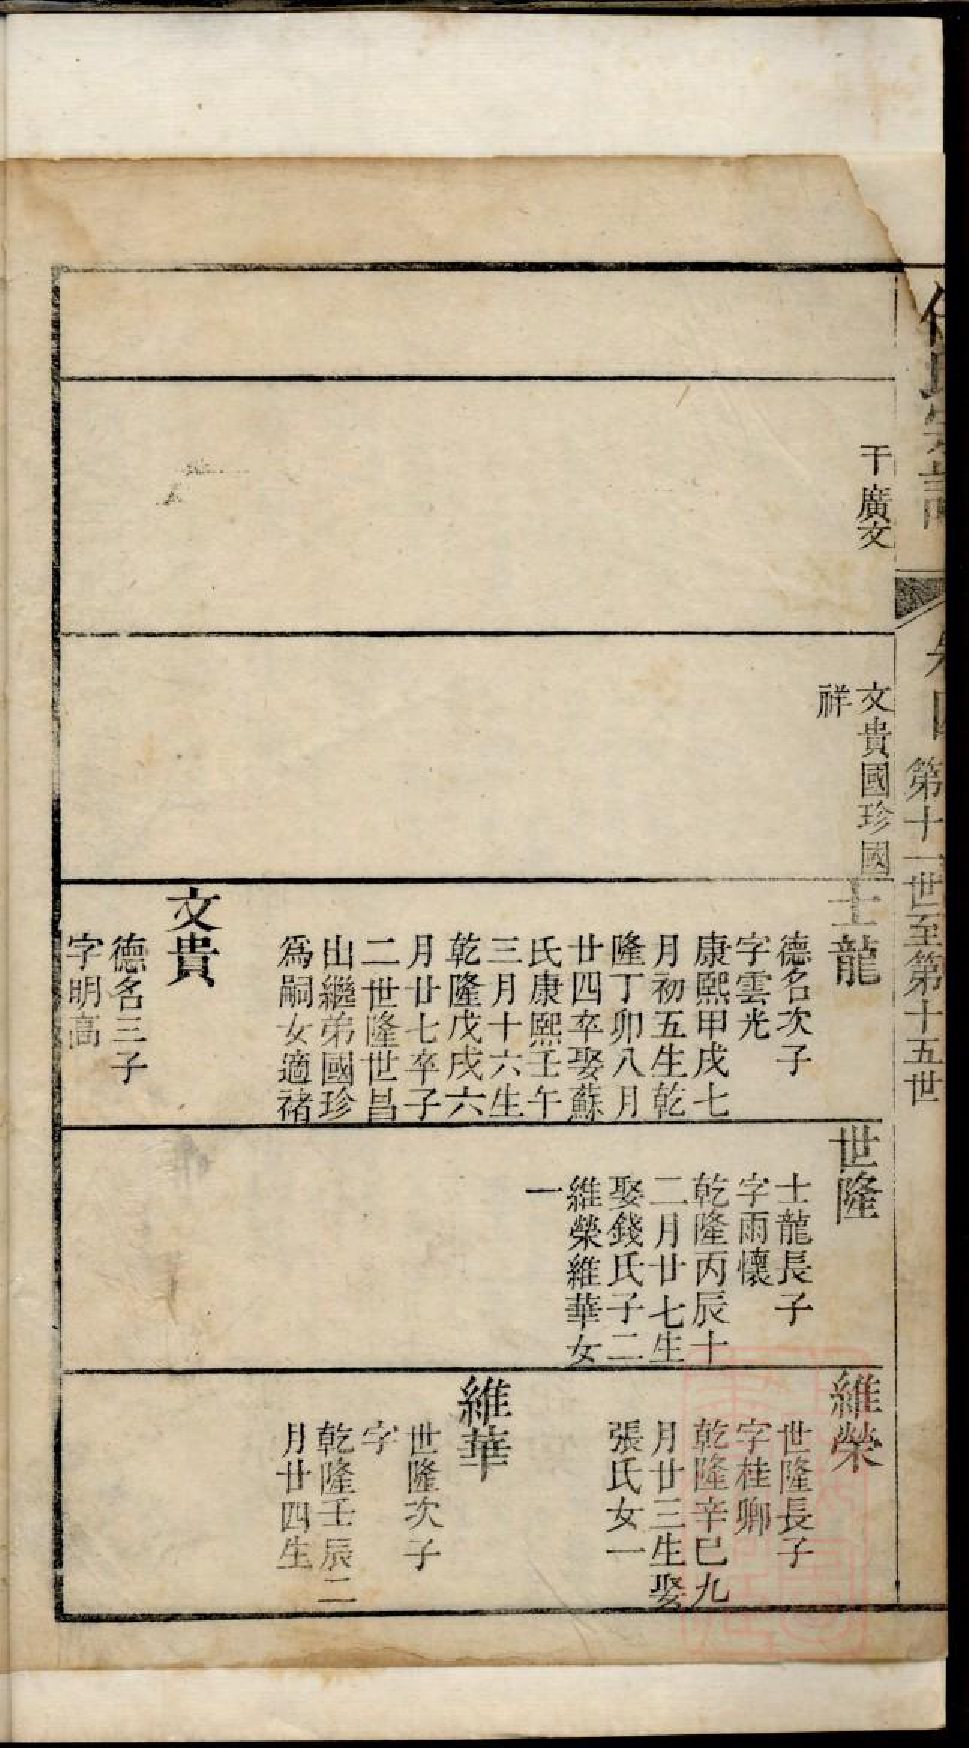 氏宗譜
卷四
第十一世至第十五世
干廣文
文貴國珍國
祥
士龍
德名次子
字雲光
康熙甲戌七
月初五生乾
隆丁卯八月
廿四卒娶蘇
氏康熙壬午
三月十六生
乾隆戊戌六
月廿七卒子
二世隆世昌
出繼弟國珍
爲嗣女適禇
文貴
德名三子
字明高
世隆
士龍長子
字雨懷
乾隆丙辰十
二月廿七生
娶錢氏子二
維榮維華女
一
維榮
世隆長子
字桂卿
乾隆辛巳九
月廿三生娶
張氏女一
維華
世隆次子
字
乾隆壬辰二
月廿四生